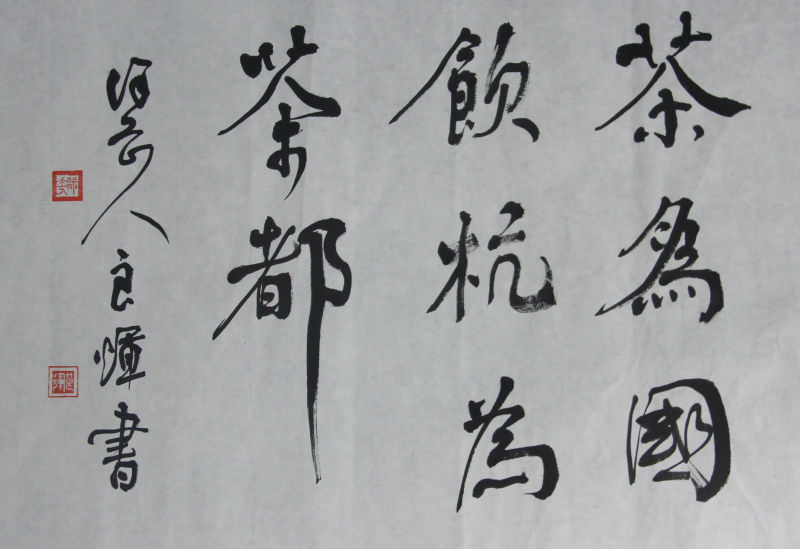 茶為國
飲杭為
茶都
人良暉書